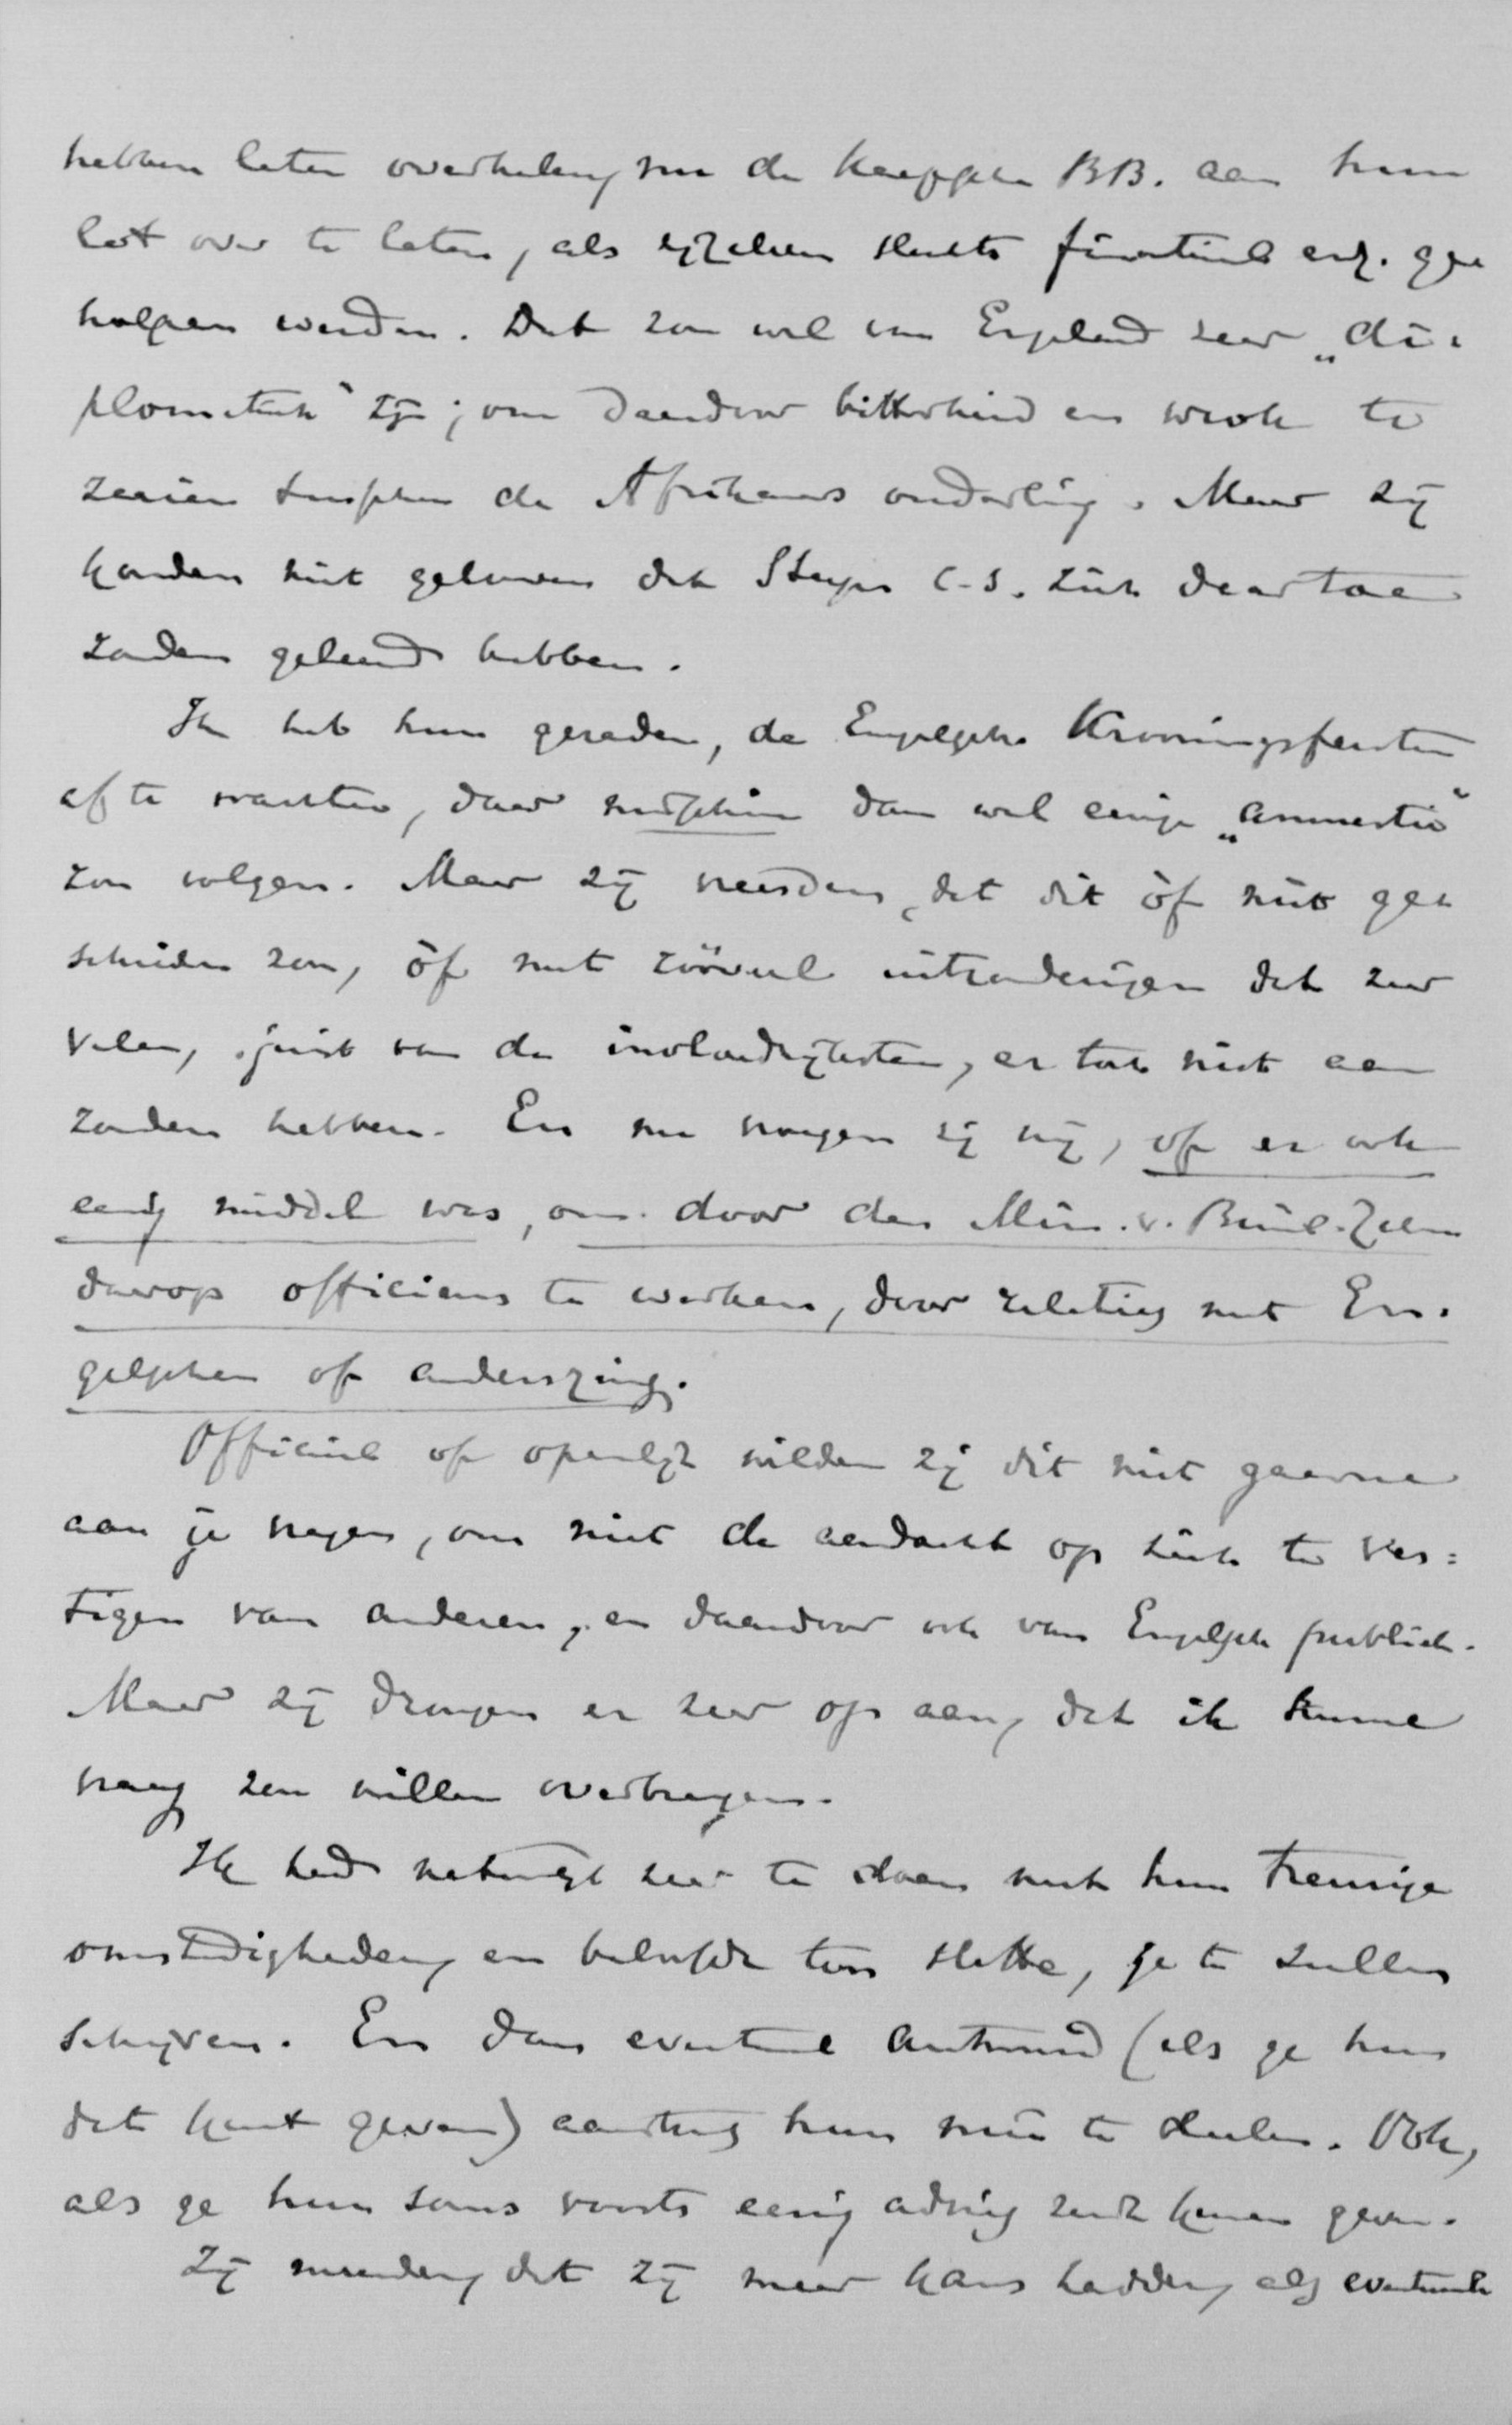 hebben laten overhalen, nu de Kaapsche BB. aan hun
lot over te laten, als zijzelven slechts finantieel enz. ge-
holpen werden. Dat zou wel van Engeland zeer „di-
plomatiek” zijn; om daardoor bitterheid en wrok te
zaaien tusschen de Afrikaners onderling. Maar zij
konden niet gelooven dat Steyn c.s. zich daartoe
zouden geleend hebben.
Ik heb hun geraden, de Engelsche Kroningsfeesten
af te wachten, daar misschien dan wel eenige „amnestie”
zou volgen. Maar zij meenden, dat dit òf niet ge-
schieden zou, òf met zóóveel uitzonderingen dat zeer
velen, juist van de invloedrijksten, er toch niets aan
zouden hebben. En nu vroegen zij mij, of er ook
eenig middel was, om door den Min. v. Buitl. Zaken
daarop officieus te werken, door relaties met En-
gelschen of anderszins.
Officieel of openlijk wilden zij dit niet gaarne
aan je vragen, om niet de aandacht op zich te ves-
tigen van anderen, en daardoor ook van Engelsch publiek.
Maar zij drongen er zeer op aan, dat ik hunne
vraag zou willen overbrengen.
Ik had natuurlijk zeer te doen met hun treurige
omstandigheden, en beloofde ten slotte, je te zullen
schrijven. En dan eventueel antwoord (als ge hun
dat kunt geven) aanstonds hun mee te deelen. Ook,
als ge hun soms voorts eenig advies zoudt kunnen geven.
Zij meenden, dat zij meer kans hadden, als eventueele